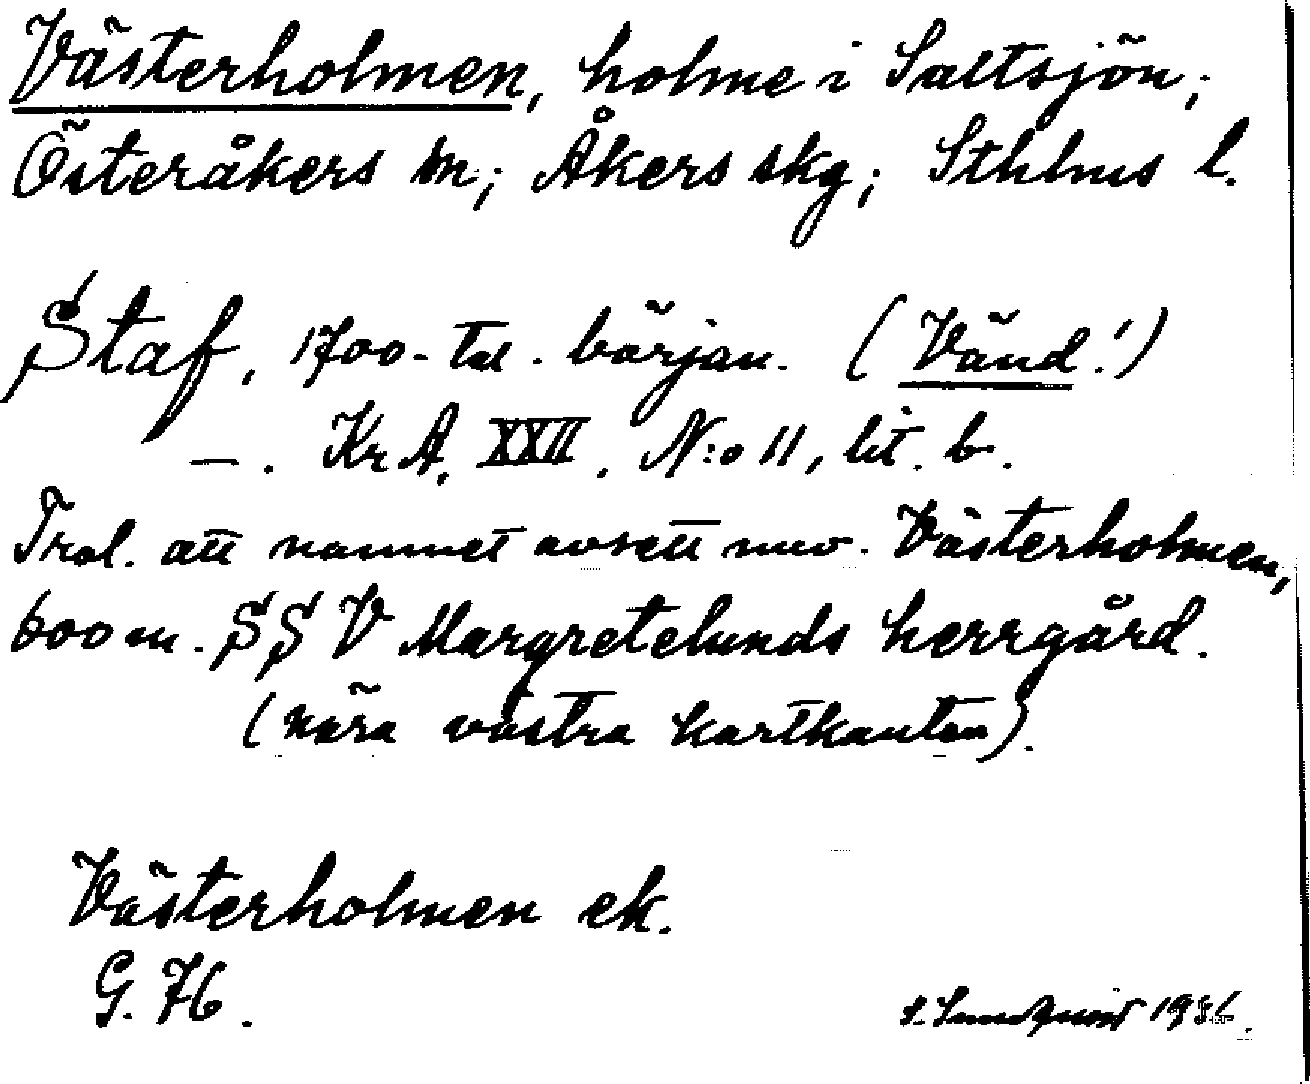 Västerholmen, holme i Saltsjön;
Österåkers sn; Åkers skg; Sthlms l.
Staf, 1700-tal. början. (Vänd!)
—. KrA, XXII, N:o 11, lit. b.
Trol. att namnet avsett nuv. Västerholmen,
600 m. SSV Margretelunds herrgård.
(nära västra kartkanten).
Västerholmen ek.
G. 76.